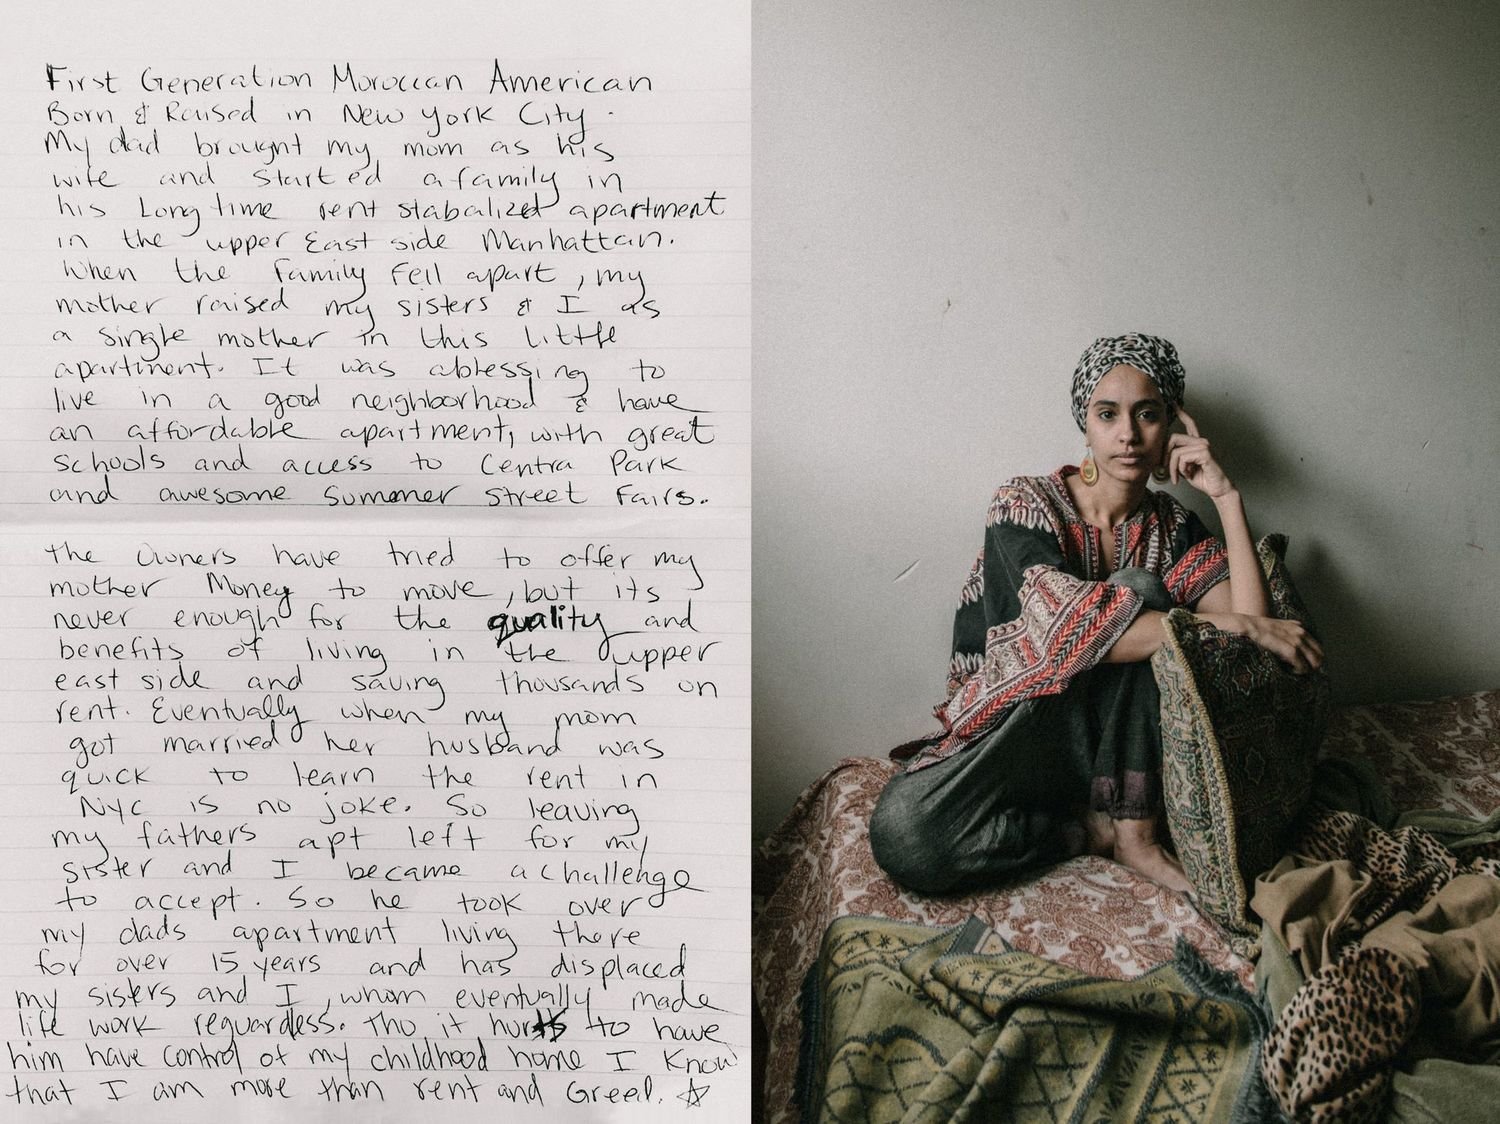 First Generation Moroccan American
Born & Raised in New York City.
My dad brought my mom as his
wife and started a family in
his Long time rent stabalized apartment
in the upper East side Manhattan.
When the family fell apart, my
mother raised my sisters & I as
a single mother in this little
apartment. It was a blessing to
live in a good neighborhood & have
an affordable apartment, with great
schools and access to Centra Park
and awesome summer street fairs.
the owners have tried to offer my
mother Money to move, but its
never enough for the quality and
benefits of living in the upper
east side and saving thousands on
rent. Eventually when my mom
got married her husband was
quick to learn the rent in
NYC is no joke. So leaving
my fathers apt left for my
sister and I became a challenge
to accept. So he took over
my dads apartment living there
for over 15 years and has displaced
my sisters and I, whom eventually made
life work reguardless. Tho it hurts to have
him have control of my childhood home I know
that I am more than rent and Greed. ☆